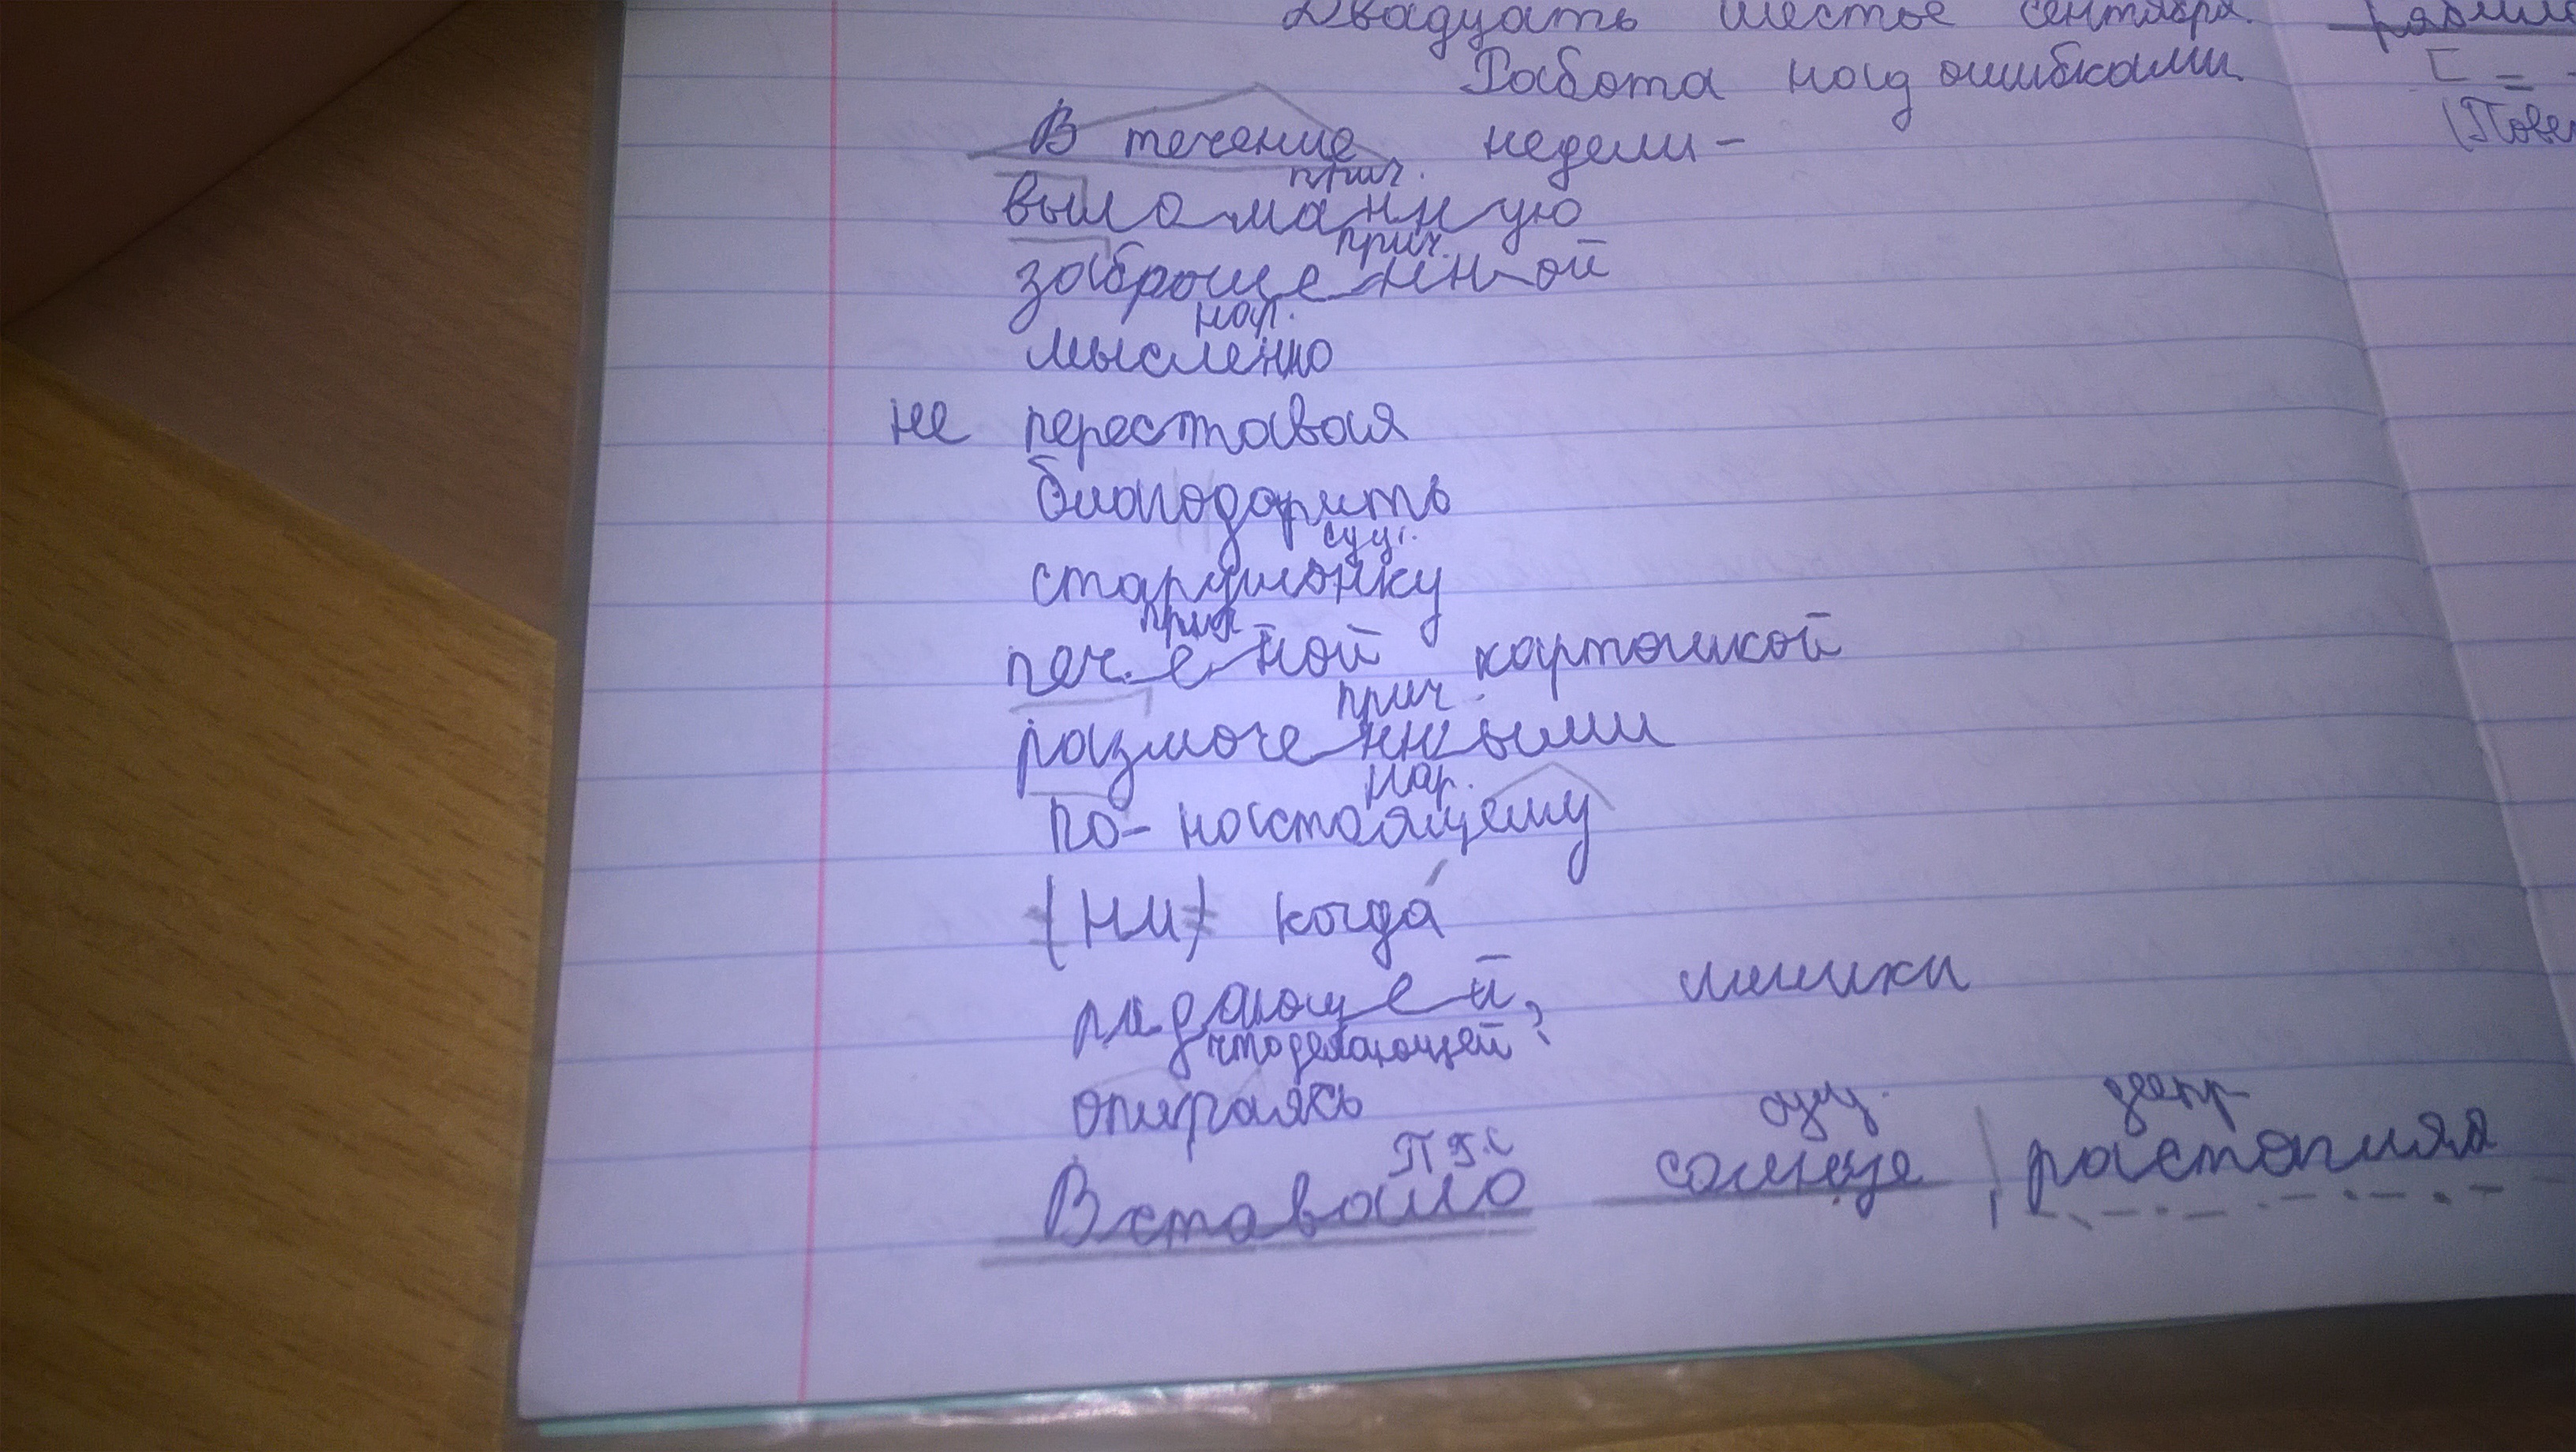 Двадцать шестое сентября.
Работа над ошибками.
В течение недели –
прич.
выломанную
прич.
заброшенной
нар.
мысленно
не переставая
благодарить
сущ.
старушонку
прил
печеной картошкой
прич.
размоченными
нар.
по-настоящему
(ни) когда
рыдающей,
что делающей?
опираясь
П Г.С сущ. деепр
Вставало солнце, растопляя
[ =
(Пове